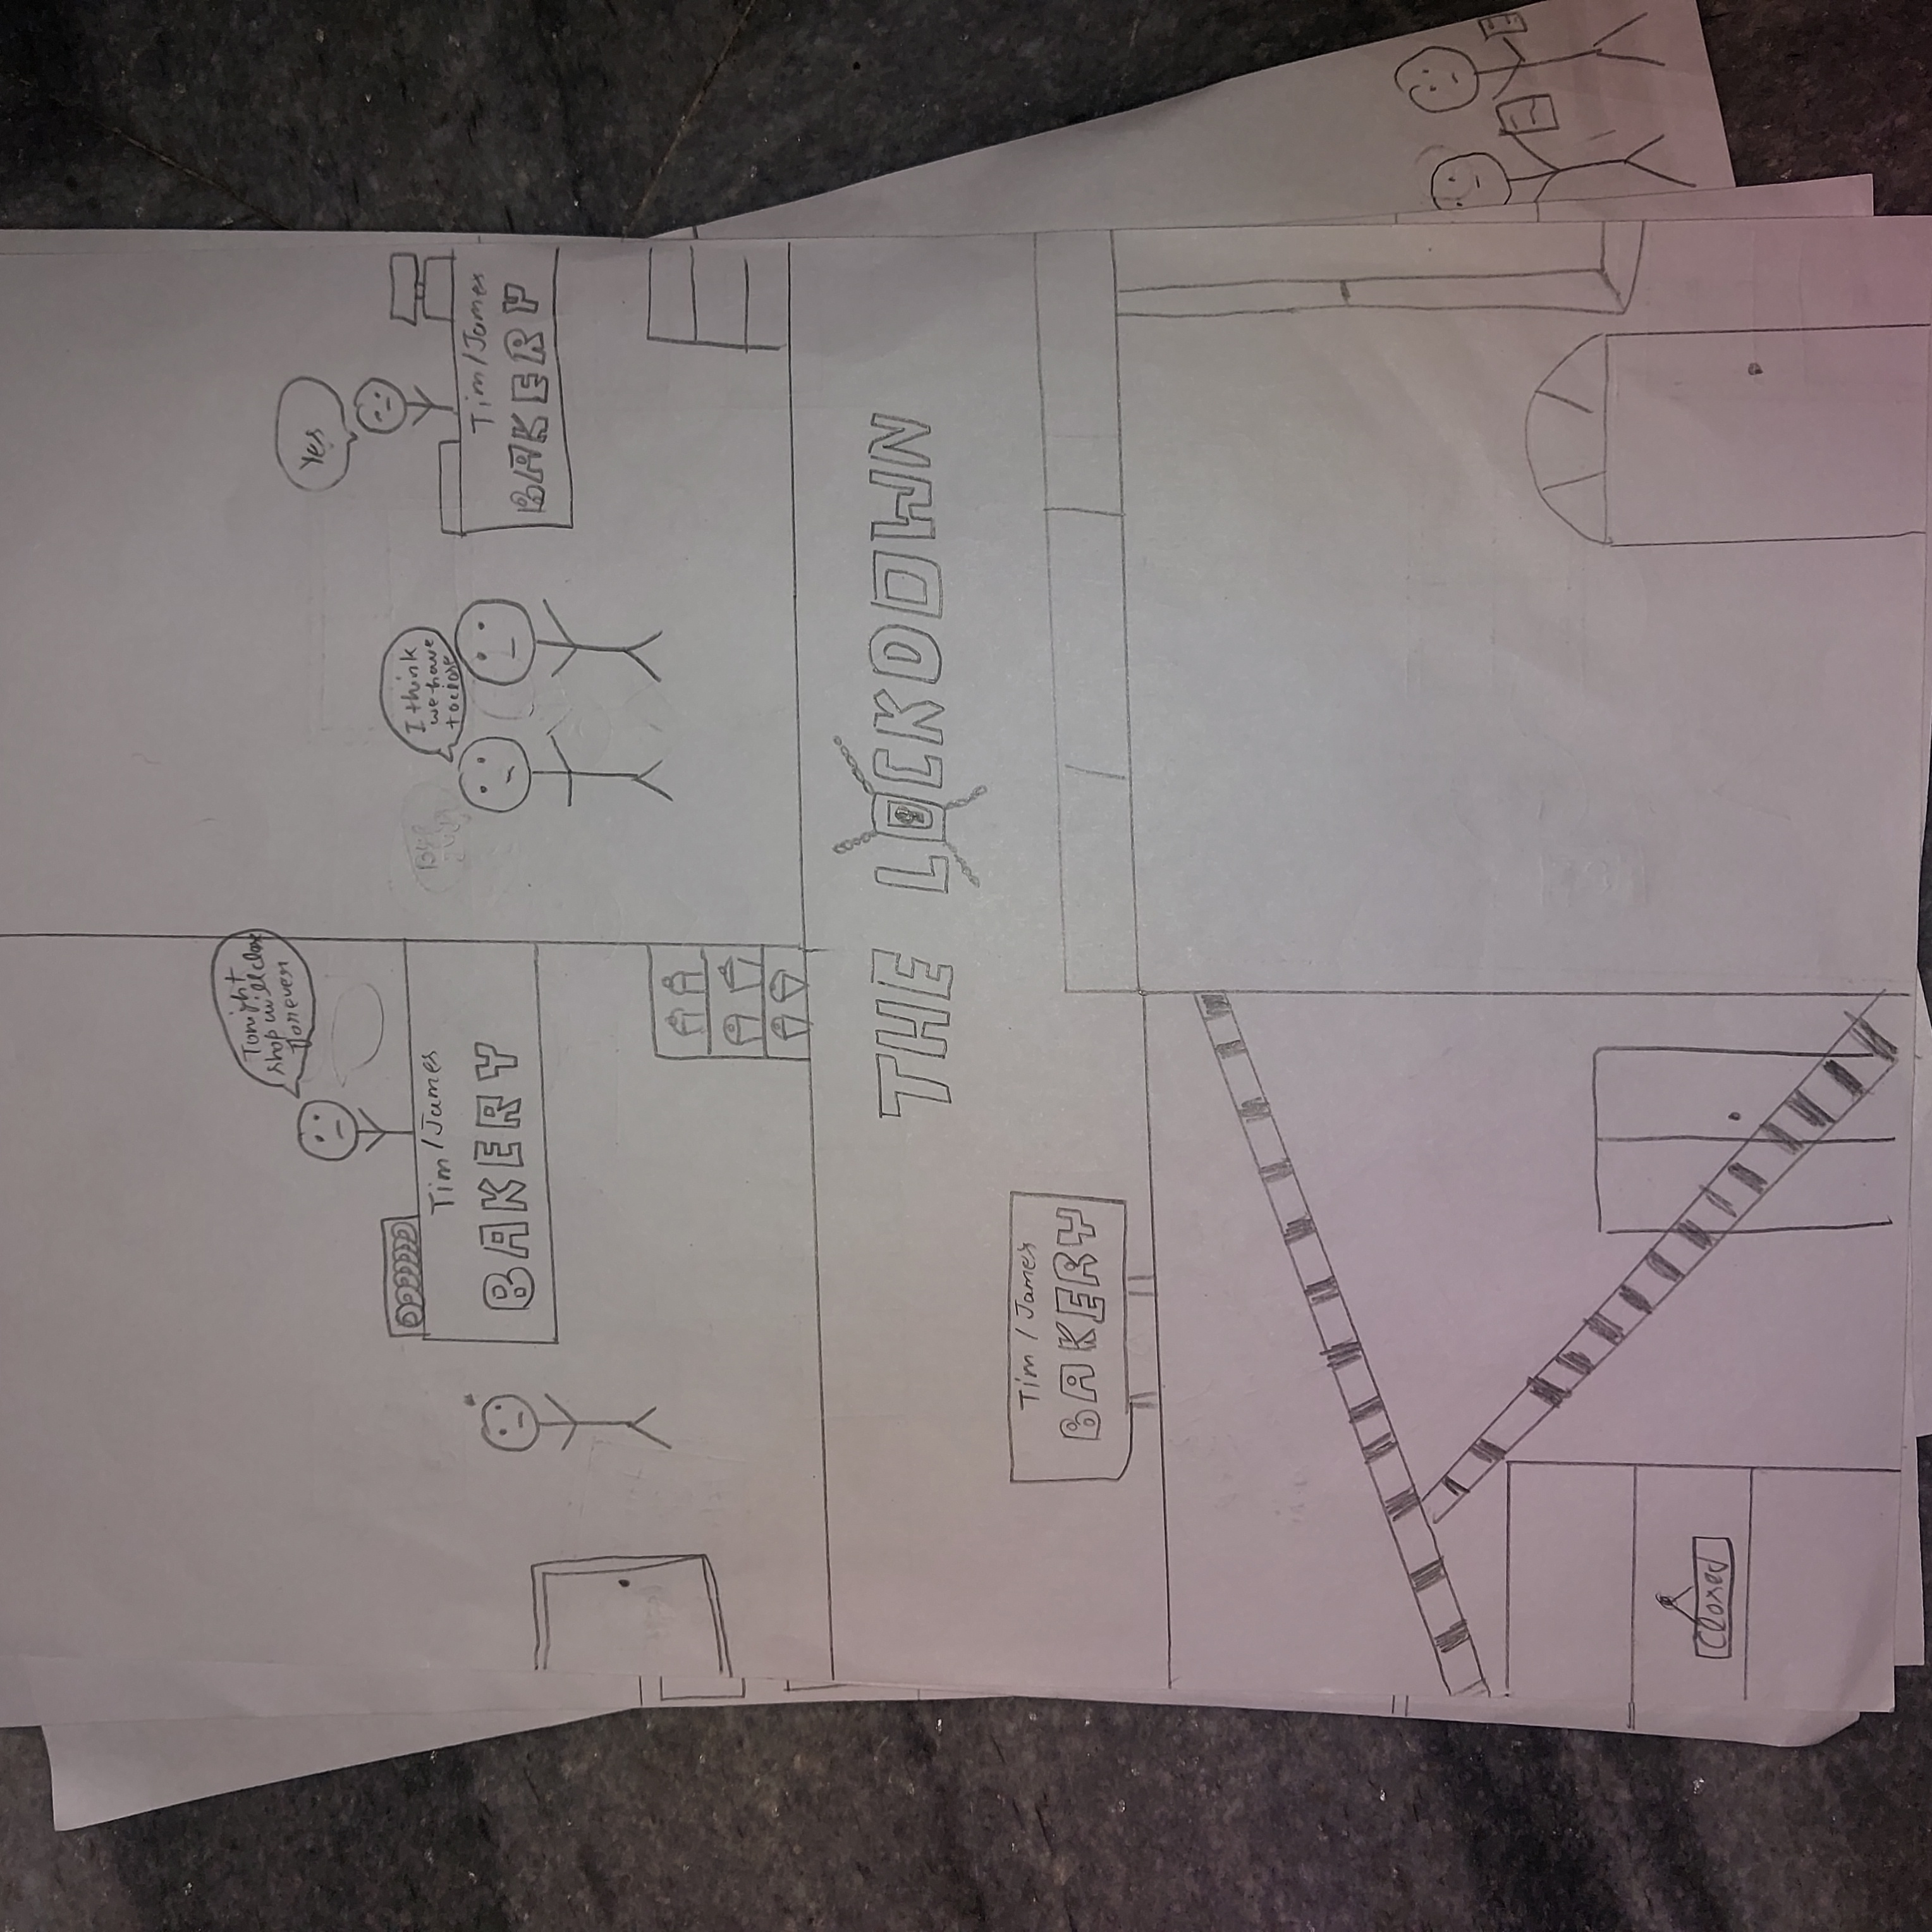 Tonight
shop will close
forever
Tim/James
BAKERY
I think
we have
to close
Yes
Tim/James
BAKERY
THE LOCKDOWN
Tim / James
BAKERY
Closed